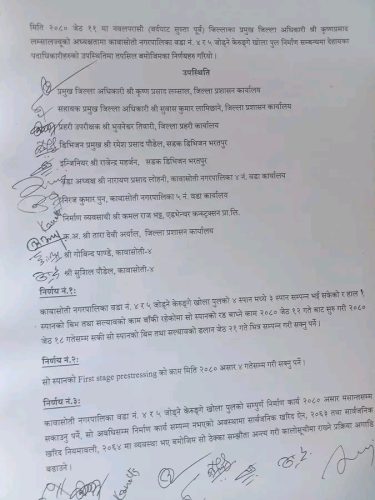 मिति २०८० जेठ ११ मा नवलपरासी (बर्दघाट सुस्ता पूर्व) जिल्लाका प्रमुख जिल्ला अधिकारी श्री कृष्णप्रसाद
लम्सालज्यूको अध्यक्षतामा कावासोती नगरपालिका वडा नं. ४ र ५ जोड्ने केरुङ्गे खोला पुल निर्माण सम्बन्धमा देहायका
पदाधिकारीहरुको उपस्थितिमा तपसिल बमोजिमका निर्णयहरु गरियो ।
उपस्थिति
प्रमुख जिल्ला अधिकारी श्री कृष्ण प्रसाद लम्साल, जिल्ला प्रशासन कार्यालय
सहायक प्रमुख जिल्ला अधिकारी श्री सुवास कुमार लामिछाने, जिल्ला प्रशासन कार्यालय
प्रहरी उपरीक्षक श्री भुवनेश्वर तिवारी, जिल्ला प्रहरी कार्यालय
डिभिजन प्रमुख श्री रमेश प्रसाद पौडेल, सडक डिभिजन भरतपुर
इन्जिनियर श्री राजेन्द्र महर्जन, सडक डिभिजन भरतपुर
वडा अध्यक्ष श्री नारायण प्रसाद लोहनी, कावासोती नगरपालिका ४ नं. वडा कार्यालय
निरज कुमार पुन, कावासोती नगरपालिका ५ नं. वडा कार्यालय
निर्माण व्यवसायी श्री कमल राज भट्ट, एडभेन्चर कन्स्ट्रक्सन प्रा.लि.
क.अ. श्री तारा देवी अर्याल, जिल्ला प्रशासन कार्यालय
श्री गोबिन्द पाण्डे, कावासोती-४
श्री सुशिल पौडेल, कावासोती-४
निर्णय नं.१:
कावासोती नगरपालिका वडा नं. ४ र ५ जोड्ने केरुङ्गे खोला पुलको ४ स्पान मध्ये ३ स्पान सम्पन्न भई सकेको र हाल १
स्पानको बिम तथा स्ल्याबको काम बाँकी रहेकोमा सो स्पानको रड बाध्ने काम २०८० जेठ १२ गते बाट सुरु गरी २०८०
जेठ १८ गतेसम्म सकी सो स्पानको बिम तथा स्ल्याबको ढलान जेठ २१ गते भित्र सम्पन्न गरी सक्नु पर्ने ।
निर्णय नं.२:
सो स्पानको First stage prestressing को काम मिति २०८० असार ४ गतेसम्म गरी सक्नु पर्ने ।
निर्णय नं.३:
कावासोती नगरपालिका वडा नं. ४ र ५ जोड्ने केरुङ्गे खोला पुलको सम्पुर्ण निर्माण कार्य २०८० असार मसान्तसम्म
सकाउनु पर्ने, सो अवधिसम्म निर्माण कार्य सम्पन्न नभएको अवस्थामा सार्वजनिक खरिद ऐन, २०६३ तथा सार्वजनिक
खरिद नियमावली, २०६४ मा व्यवस्था भए बमोजिम सो ठेक्का सम्झौता अन्त्य गरी कालोसूचीमा राख्ने प्रक्रिया अगाडि
बढाउने ।